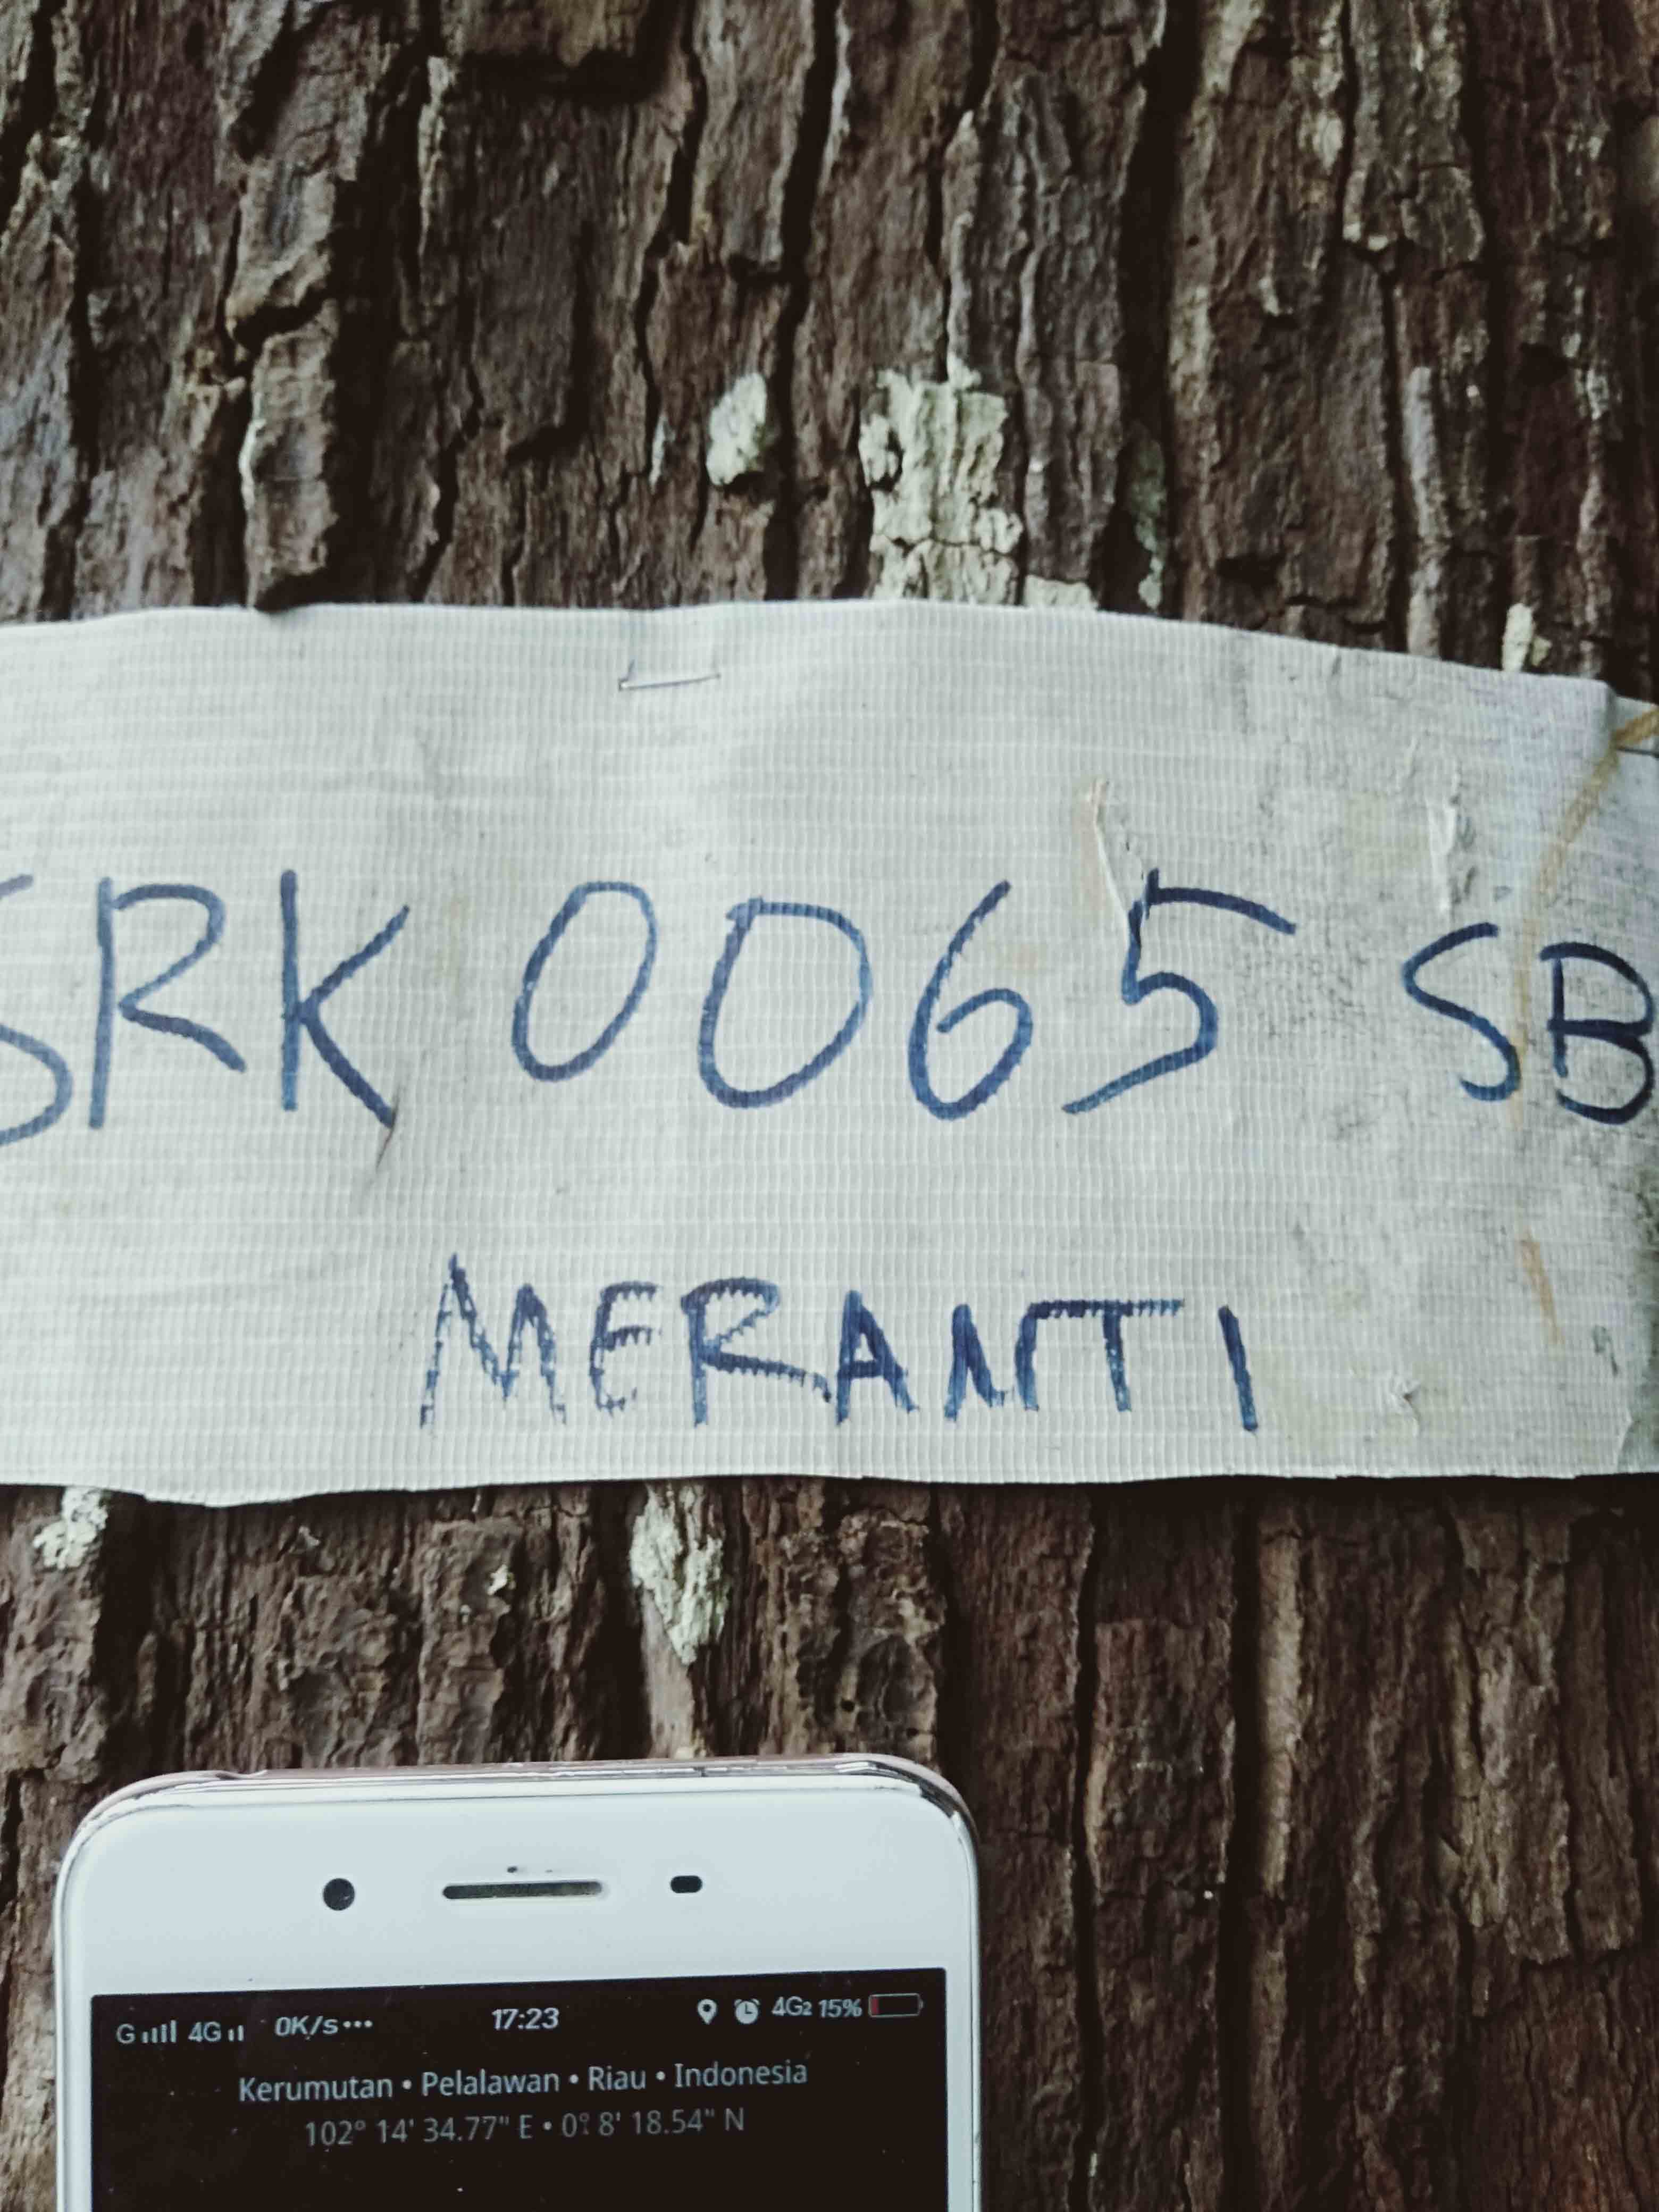 SRK 0065 SB
MERANTI
G 4G 0K/s... 17:23 4G2 15%
Kerumutan • Pelalawan • Riau • Indonesia
102° 14' 34.77" E • 0° 8' 18.54" N